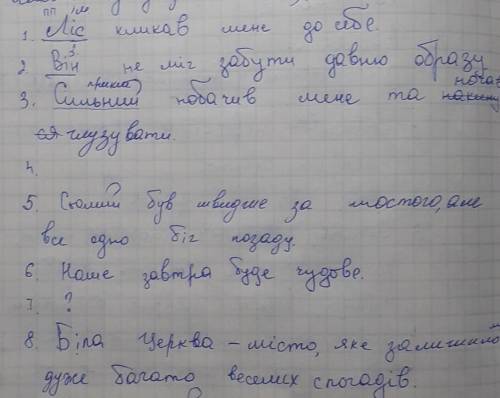 ПП ім
1. Ліс кликав мене до себе.
з.
2. Він не міг забути давню образу
прикм
почав
3. Сильний побачив мене та
ся глузувати.
4.
5. був швидше за товстого, але
все одно біг позаду.
6. Наше завтра буде чудове.
7. ?
8. Біла Церква – місто, яке залишило
дуже багато веселих спогадів.